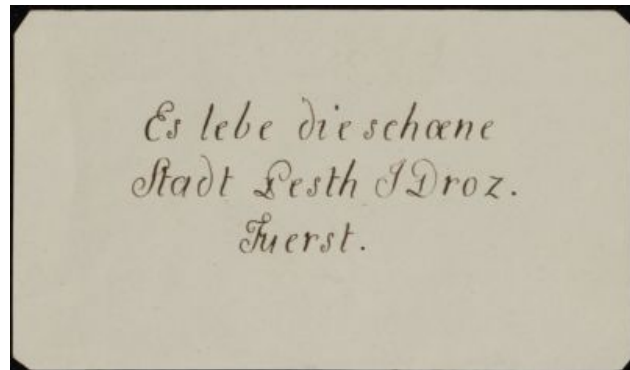 Es lebe die schœne
Stadt Pesth J Droz.
Fuerst.